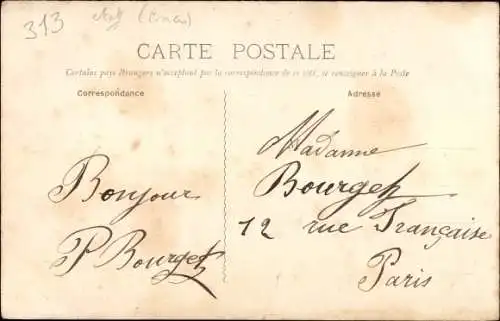 313
CARTE POSTALE
Certains pays étrangers n'acceptent pas la correspondance de ce côté, se renseigner à la Poste
Correspondance
Adresse
Bonjour
P Bourget
Madame
Bourget
12 rue Française
Paris